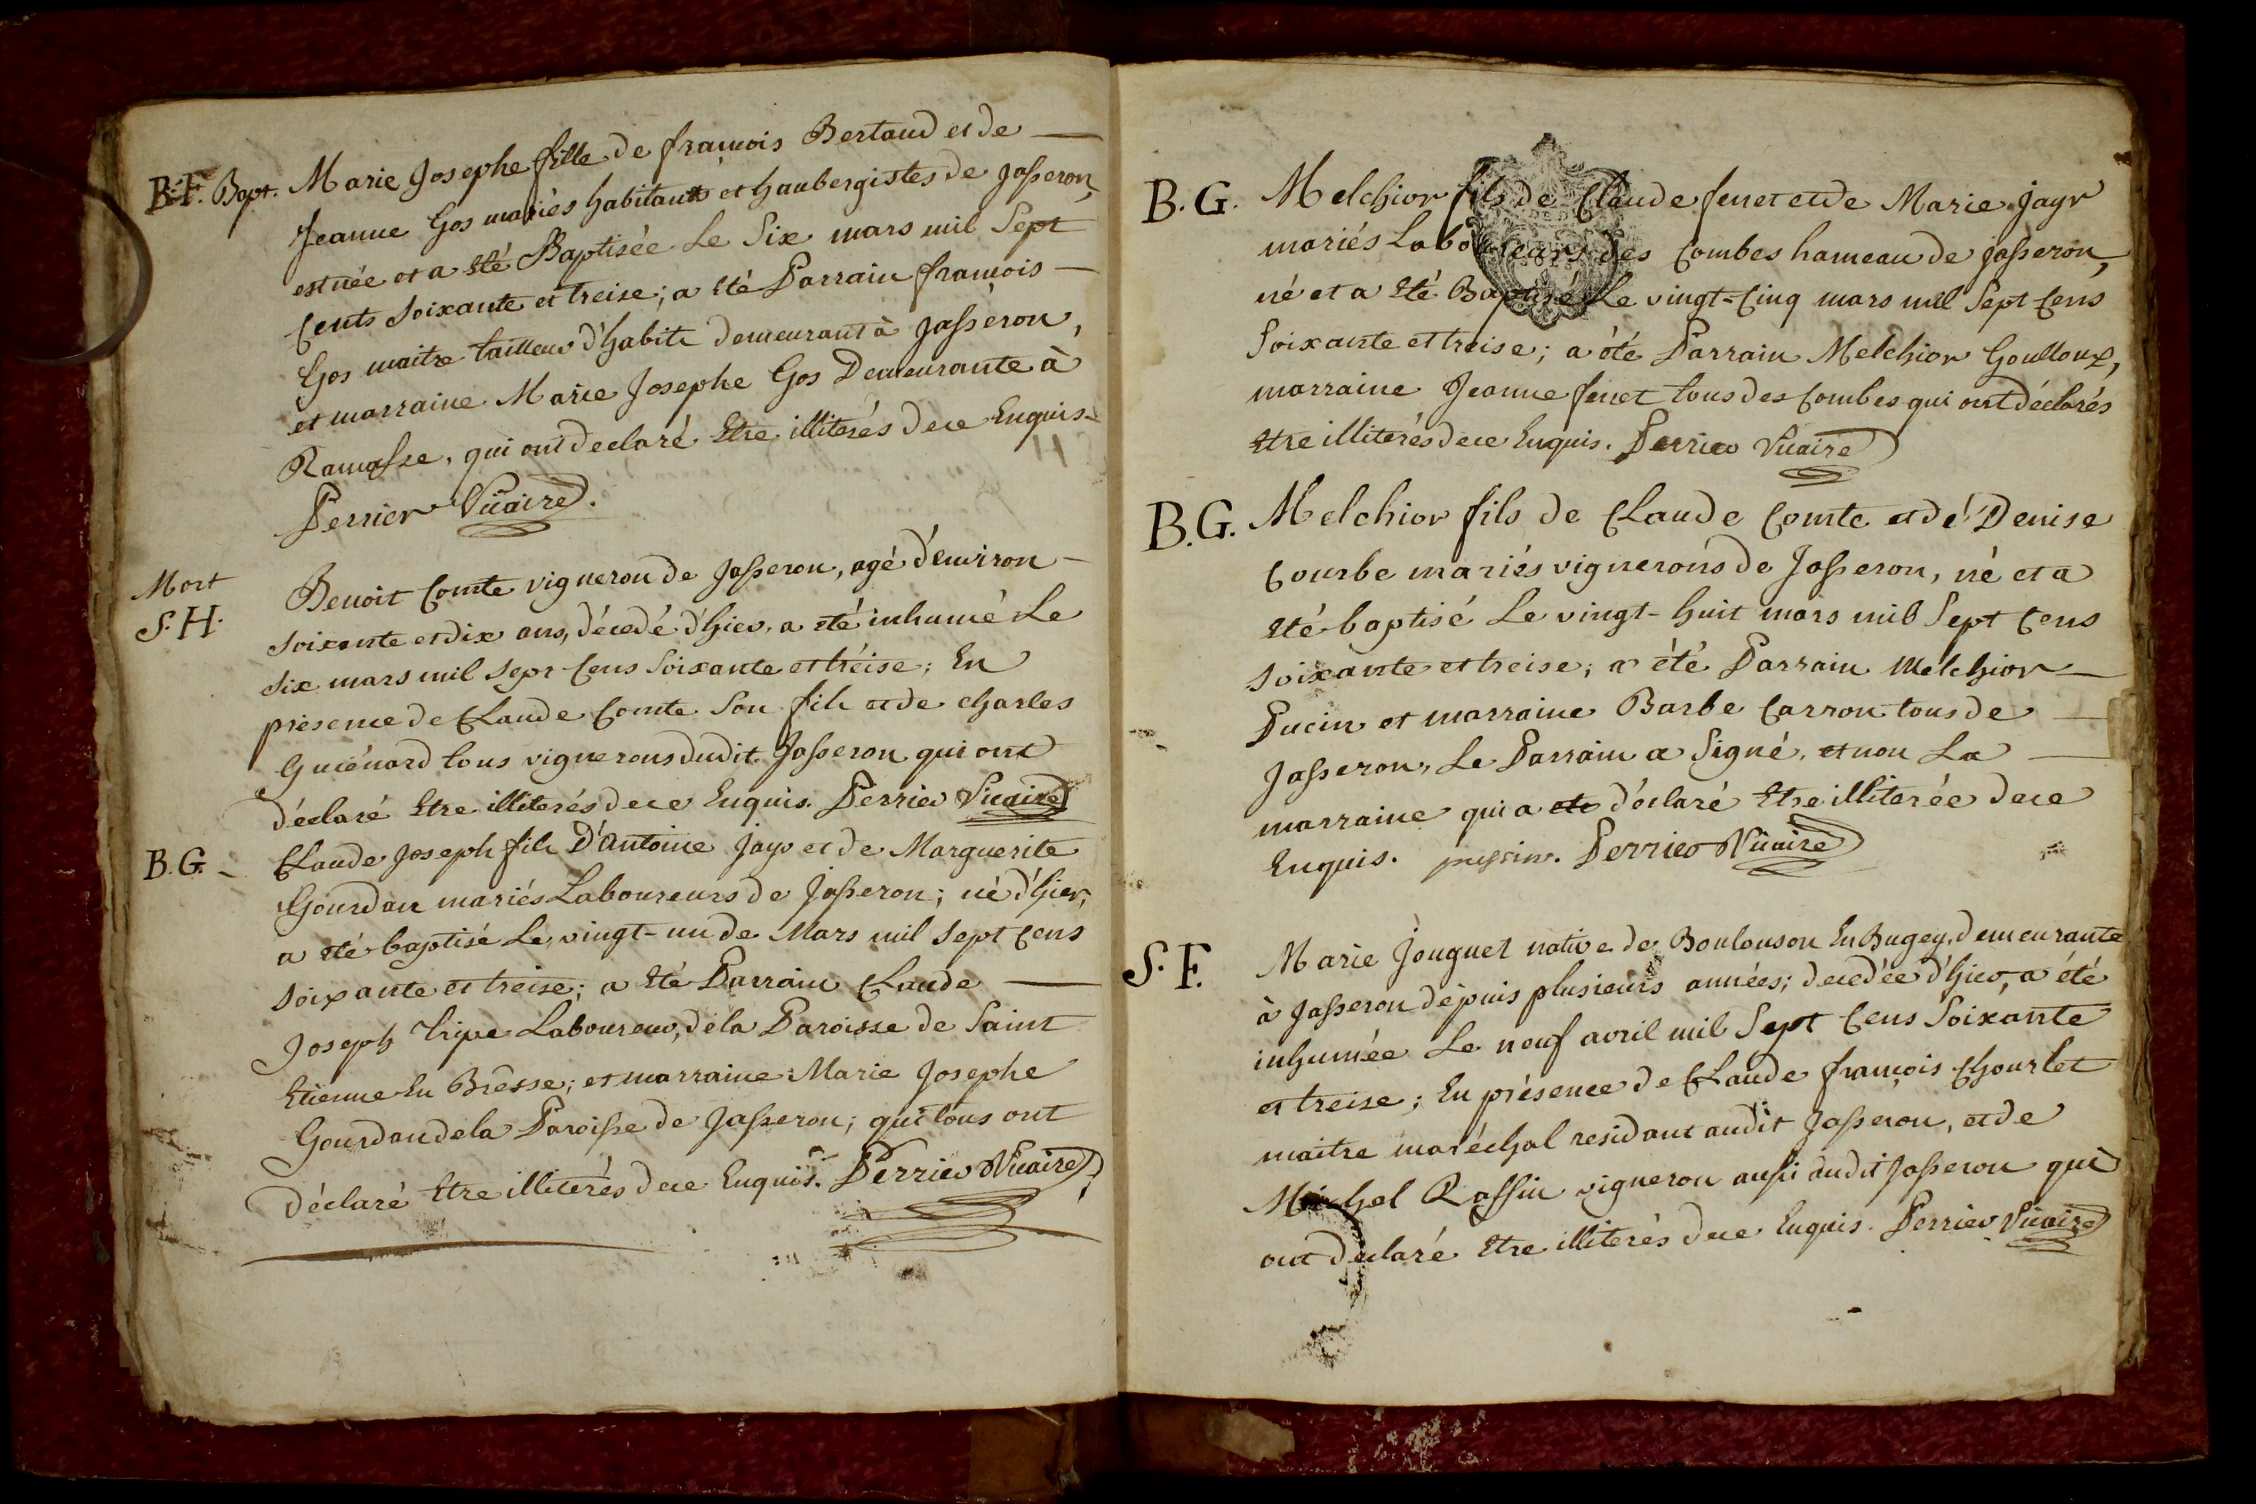 B.F. Bapt. Marie Josephe fille de françois Bertaud et de
Jeanne Gos mariés habitants et haubergistes de Jasseron,
est née et a Eté Baptisée Le Six mars mil Sept
Cents Soixante et treise; a Eté Parrain françois
Gos maitre tailleur d'habits demeurant à Jasseron,
et marraine Marie Josephe Gos Demeurante à
Ramasse, qui ont declaré Etre illiterés de ce Enquis
Perrier Vicaire.
Mort
S.H.
Benoit Comte vigneron de Jasseron, agé d'environ
soixante et dix ans, décedé d'hier, a eté inhumé Le
six mars mil sept Cens Soixante et tréise; En
présence de CLaude Comte Son fils et de charles
Guiénard tous vignerons dudit Jasseron qui ont
déclaré Etre illiterés de ce Enquis. Perrier Vicaire
B.G. CLaude Joseph fils D'Antoine Jayr et de Marguerite
Gourdan mariés Laboureurs de Jasseron; né d'hier,
a eté baptisé Le vingt-un de Mars mil Sept Cens
soixante et treise; a Eté Parrain CLaude
Joseph Tripe Laboureur, de la Paroisse de Saint
Etienne En Bresse; et marraine Marie Josephe
Gourdan de la Paroisse de Jasseron; qui tous ont
déclaré Etre illiterés de ce Enquis. Perrier Vicaire
B.G. Melchior fils de Claude fenet et de Marie Jayr
mariés Laboureurs des Combes hameau de Jasseron,
né et a Eté Baptisé Le vingt-Cinq mars mil Sept Cens
Soixante et treise; a été Parrain Melchior Goulloux,
marraine Jeanne fenet tous des Combes qui ont déclarés
Etre illiterés de ce Enquis. Perrier Vicaire
B.G. Melchior fils de CLaude Comte et de Denise
Courbe mariés vignerons de Jasseron, né et a
Eté baptisé Le vingt-huit mars mil Sept Cens
soixante et treise; a été Parrain Melchior
Pucin et marraine Barbe Carron tous de
Jasseron, Le Parrain a Signé, et non La
marraine qui a ete déclaré Etre illiterée de ce
Enquis. Perrier Vicaire
S.F. Marie Jouguet native de Boulouson En Bugey, demeurante
à Jasseron depuis plusieurs années; decedée d'hier, a été
inhumée Le neuf avril mil Sept Cens Soixante
et treize; En présence de CLaude françois Chourlet
maitre maréchal residant audit Jasseron, et de
Michel Raffin vigneron aussi dudit Jasseron qui
ont declaré Etre illiterés de ce Enquis. Perrier Vicaire